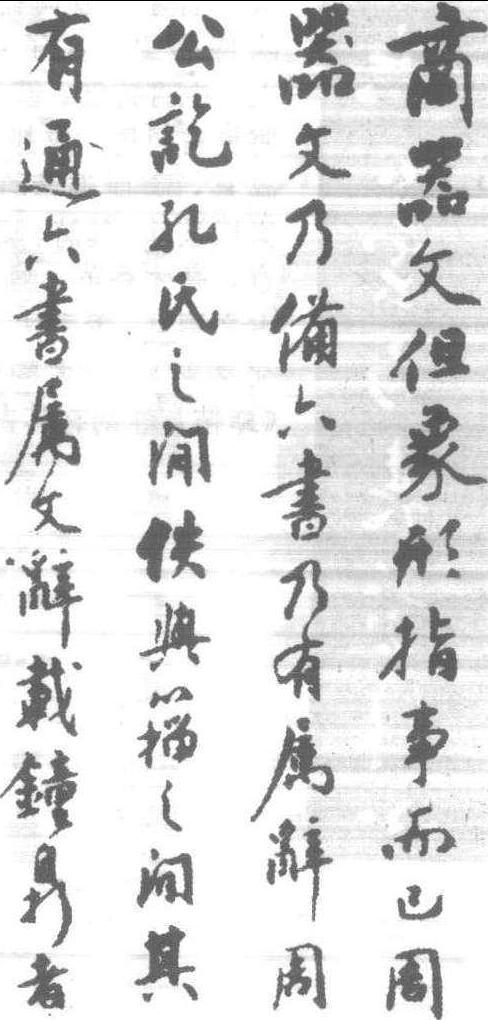 商器文但象形指事而已周
器文乃備六書乃有属辭周
公訖孔氏之間佚與籀之間其
有通六書属文辭載鐘鼎者